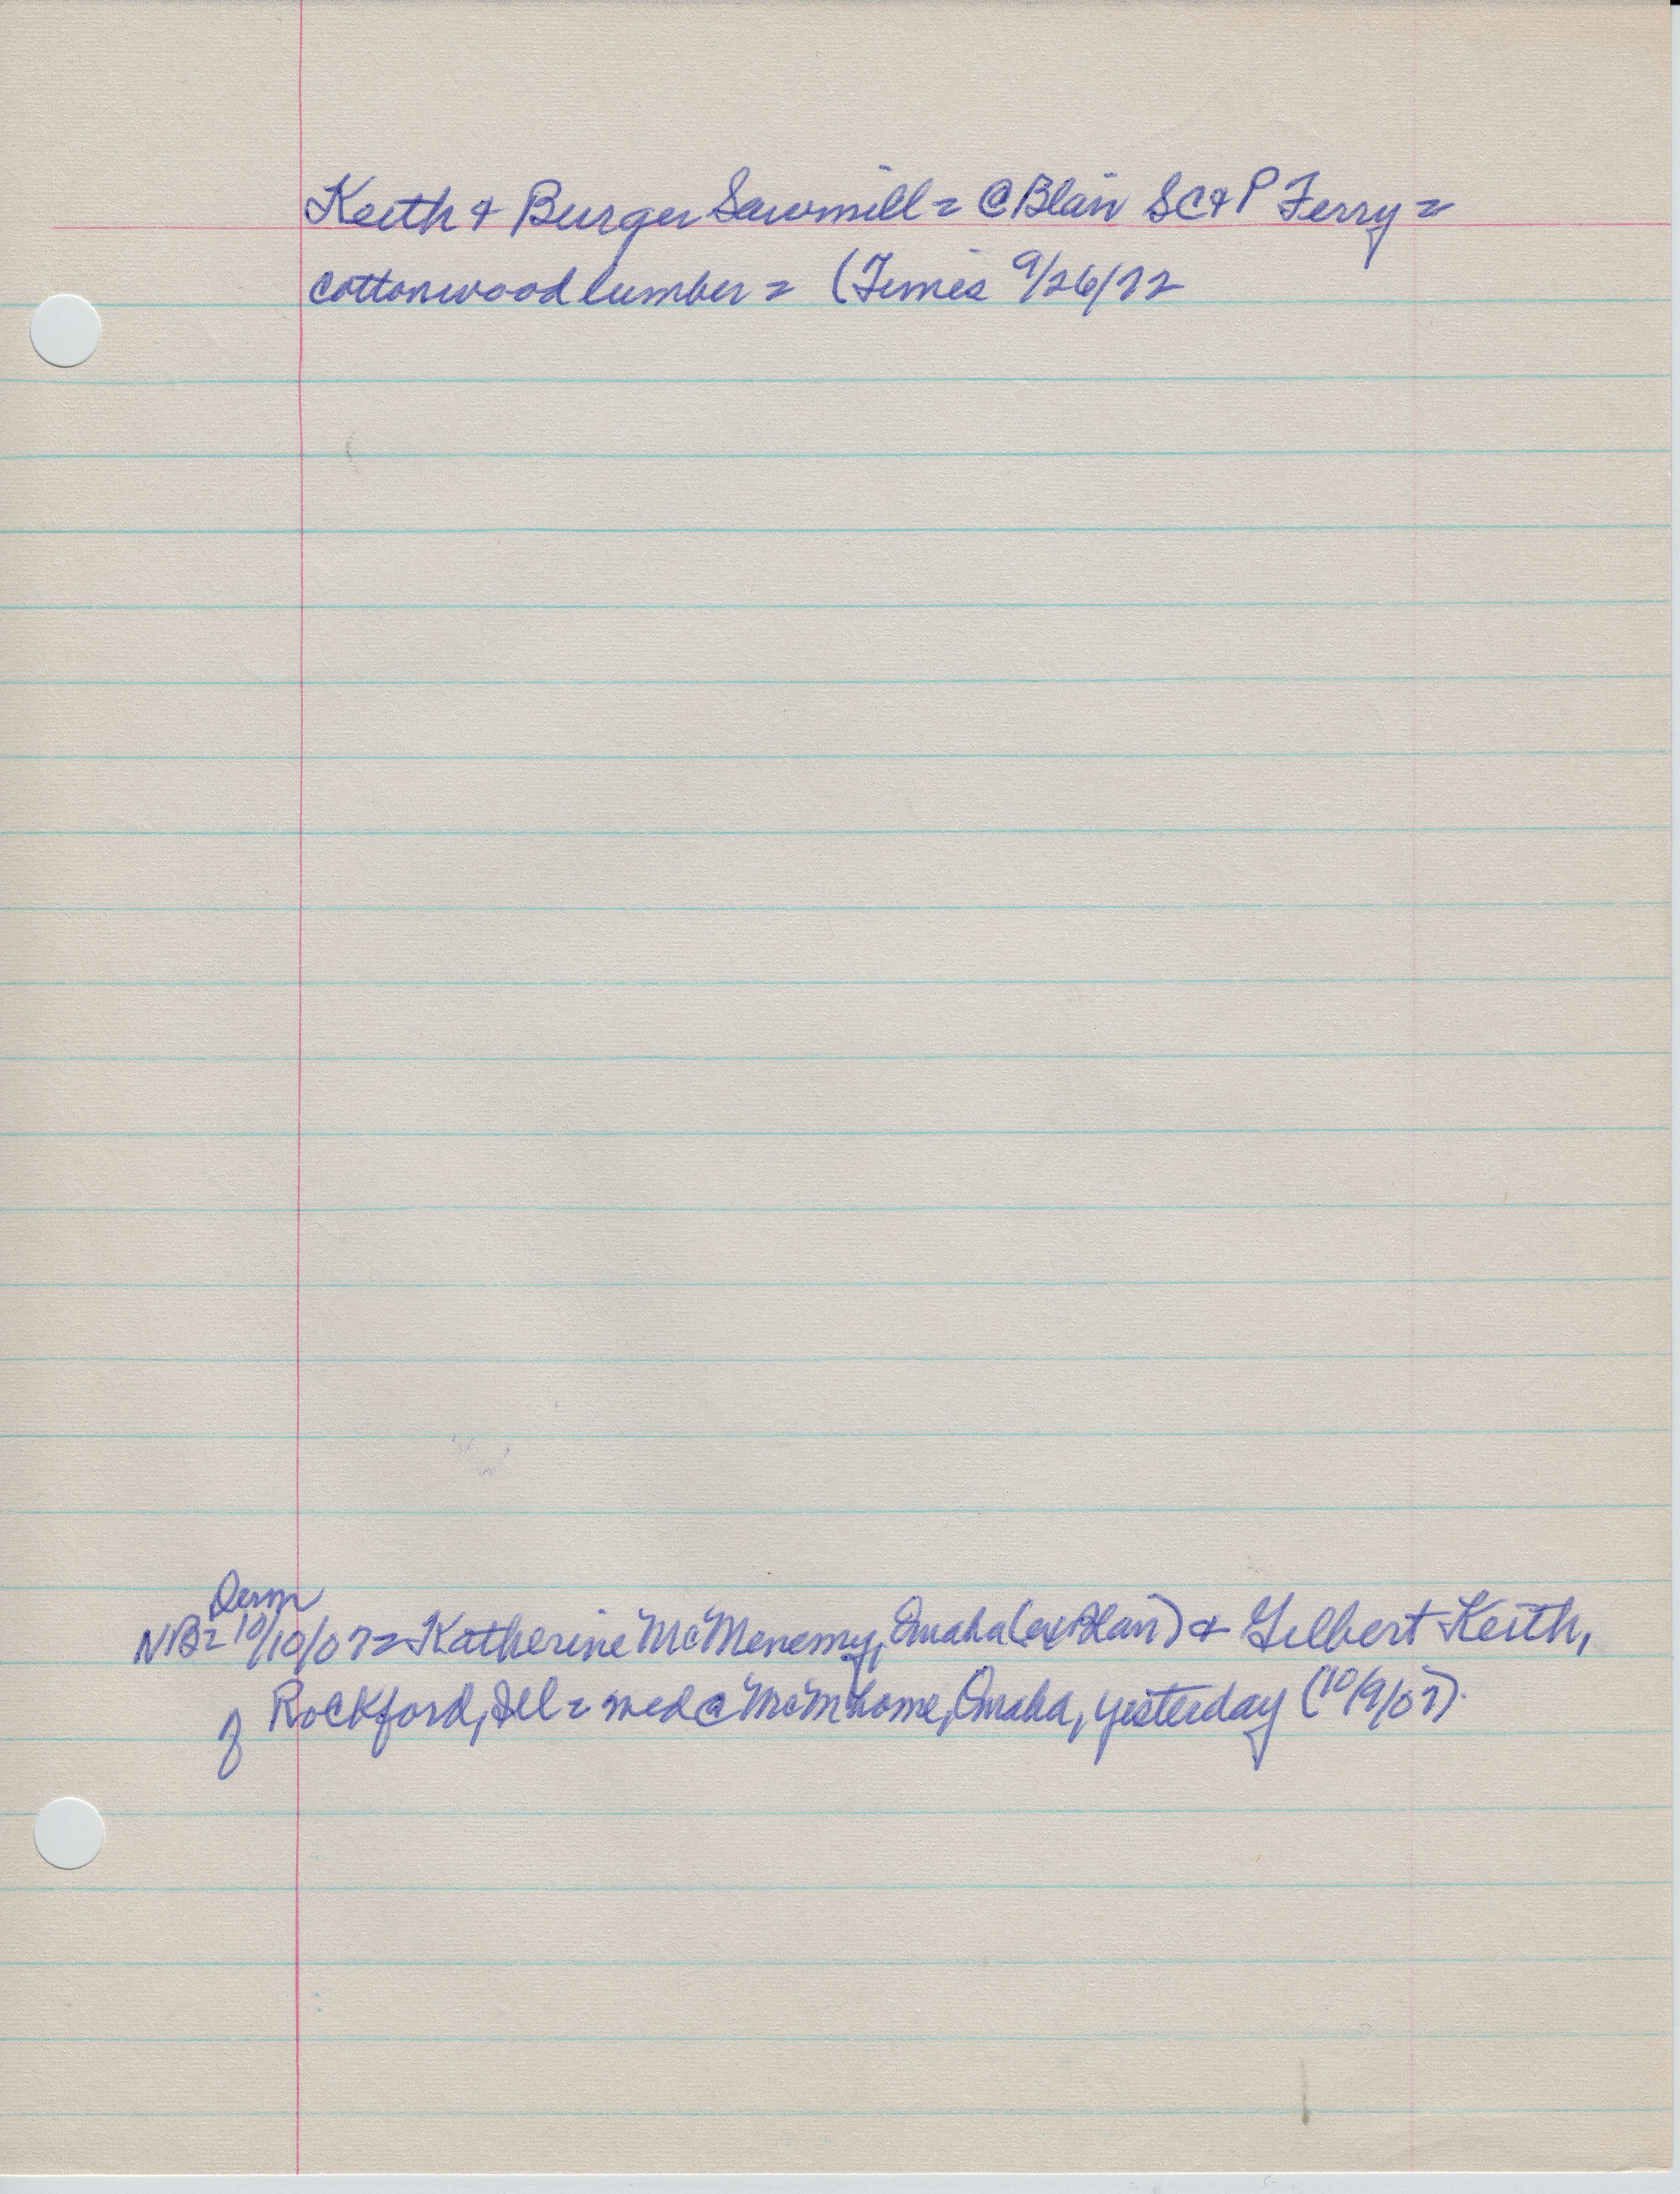 Keith & Burger Sawmill = @ Blair SC&P Ferry =
cottonwood lumber = (Times 9/26/72
Dem
NB= 10/10/07= Katherine McMenemy, Omaha (ex Blair) & Gilbert Keith,
of Rockford, Ill = med @ McM home, Omaha, yesterday (10/9/07).